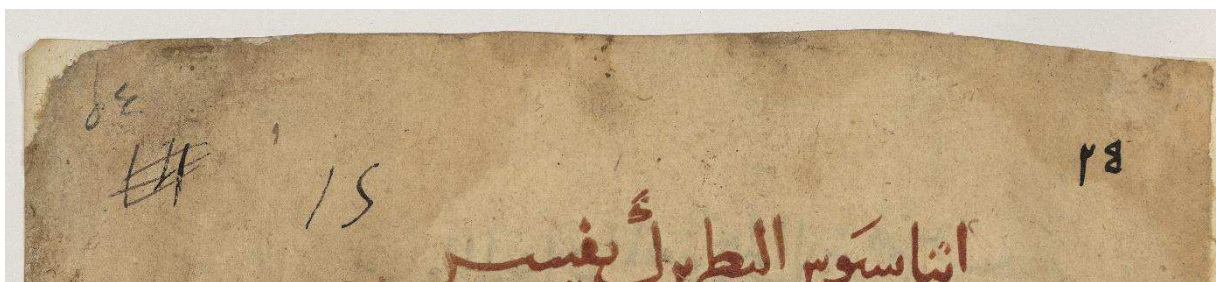 ٥٤
٢٤
١٥
اثناسيوس البطريرك يفسر